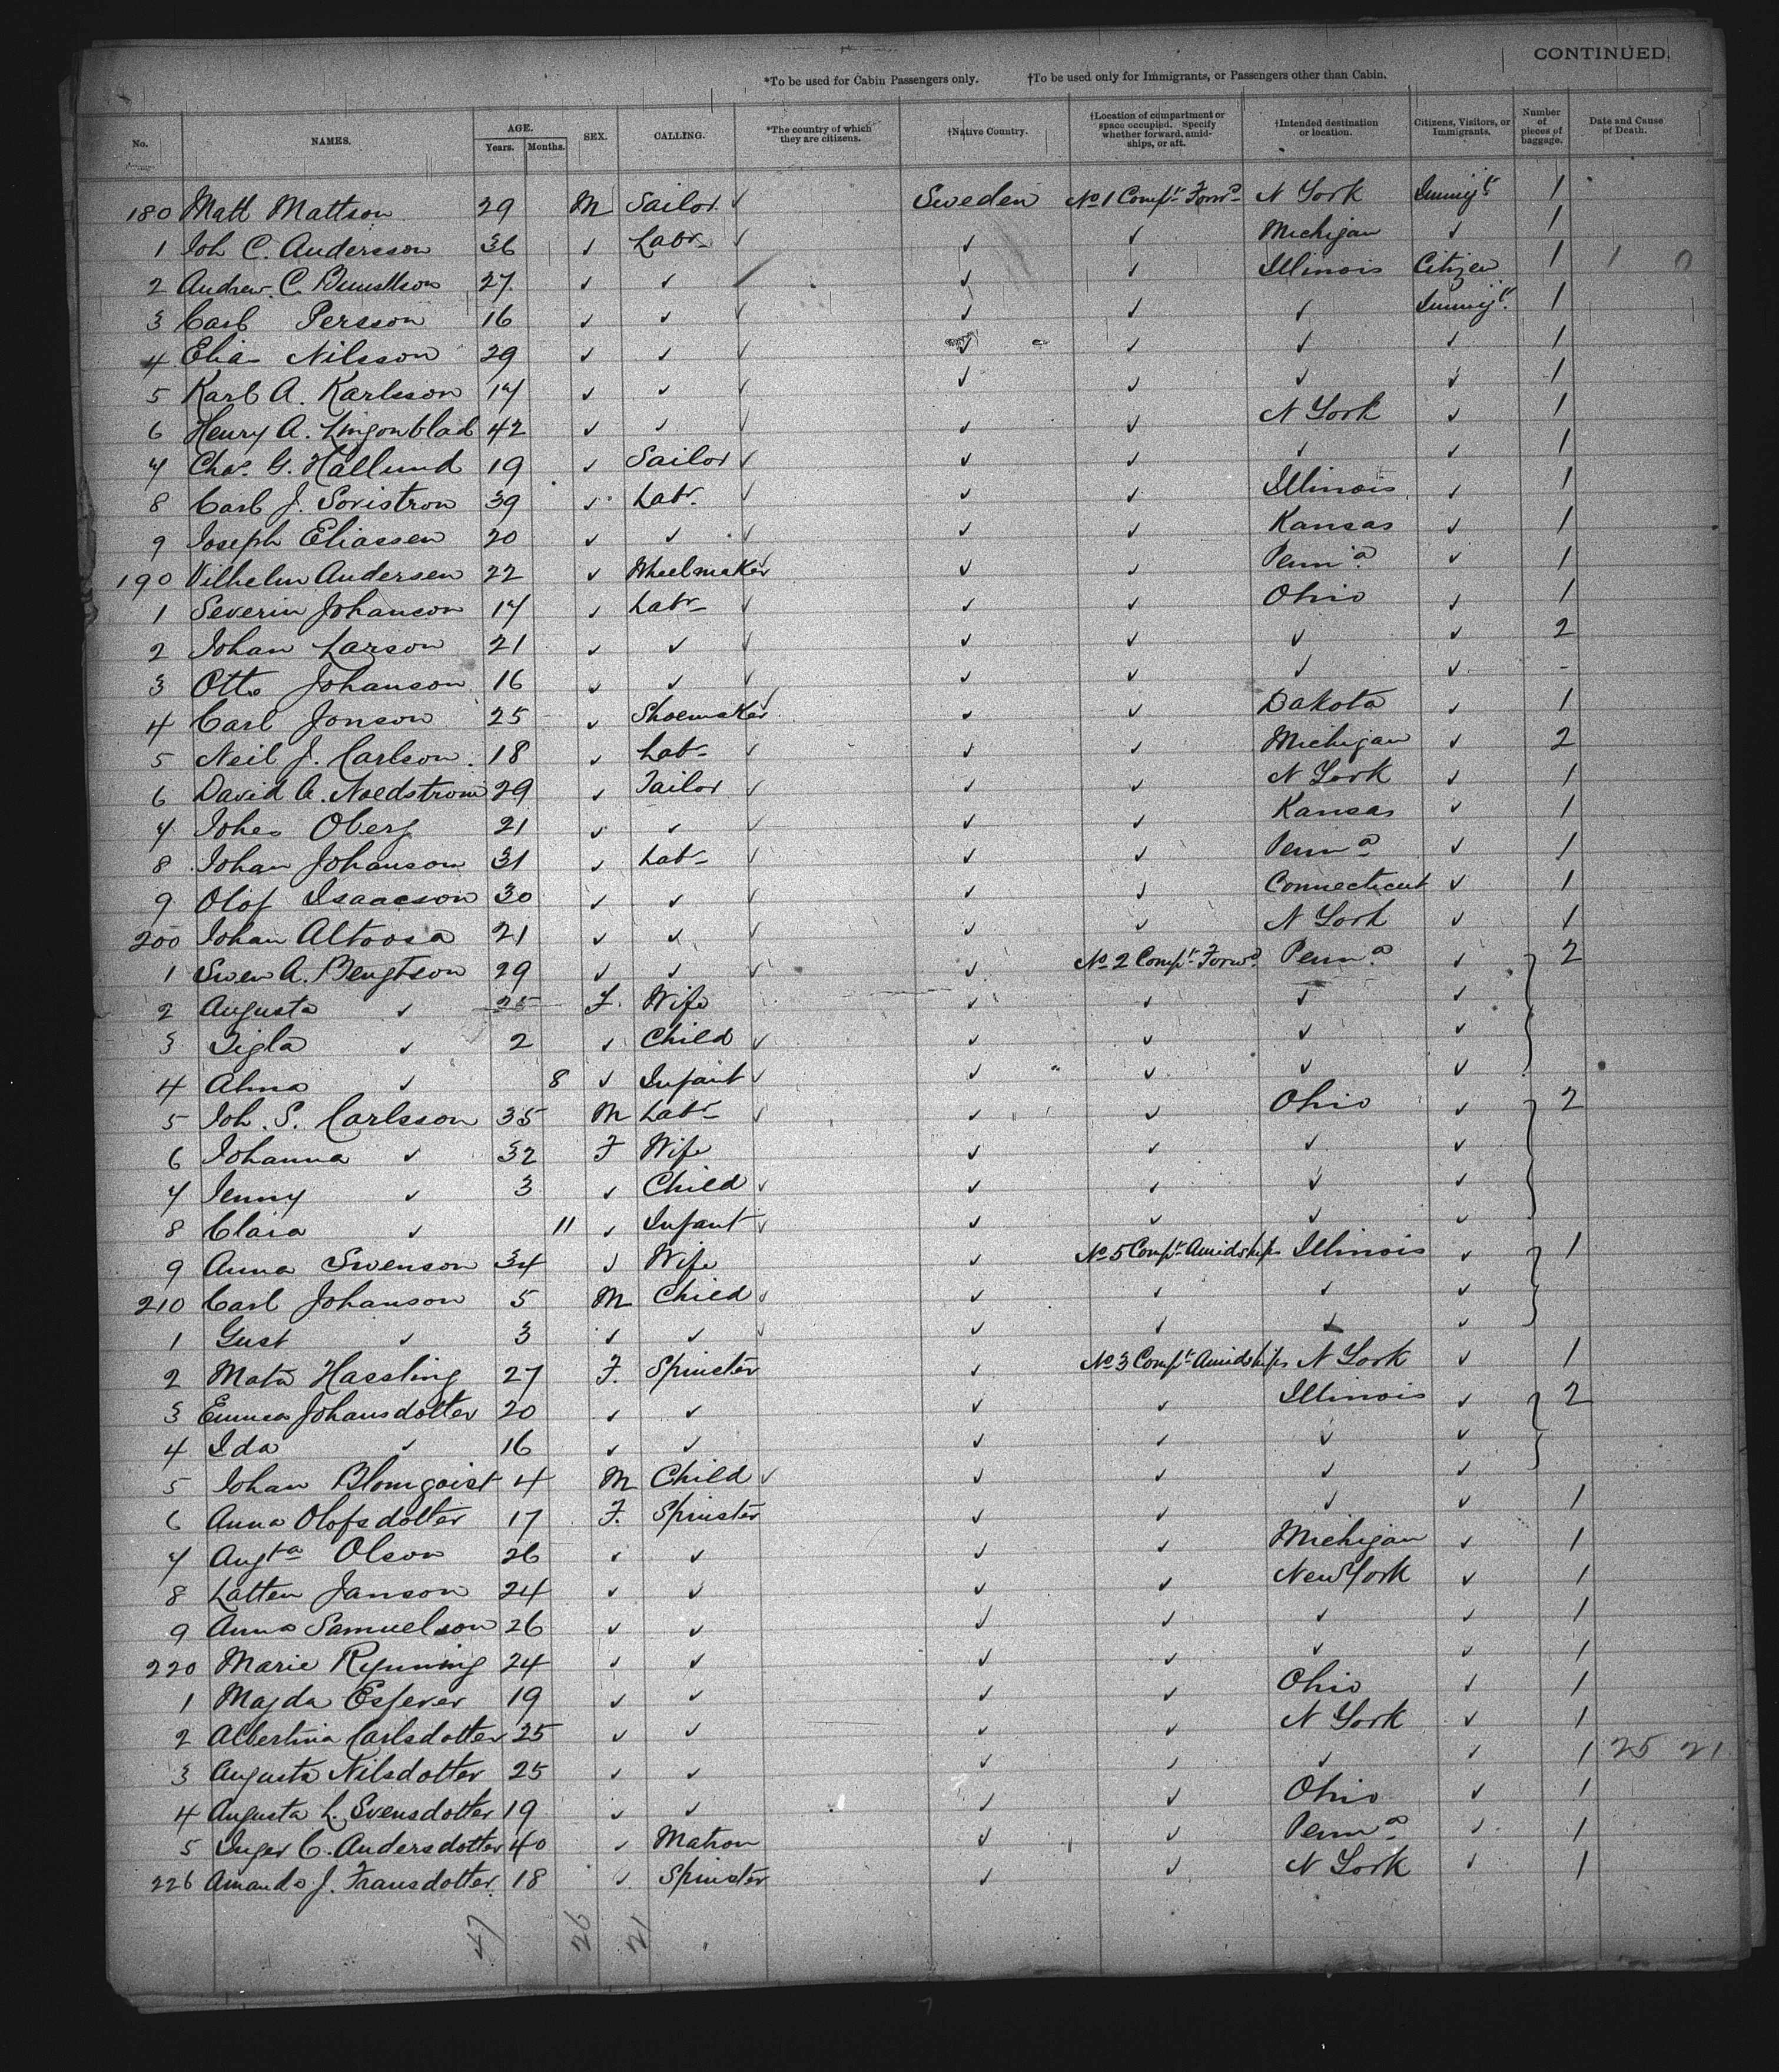 CONTINUED.
*To be used for Cabin Passengers only. †To be used only for Immigrants, or Passengers other than Cabin.
No. NAMES. AGE. Years. Months. SEX. CALLING. *The country of which they are citizens. †Native Country. †Location of compartment or space occupied. Specify whether forward, amidships, or aft. †Intended destination or location. Citizens, Visitors, or Immigrants. Number of pieces of baggage. Date and Cause of Death.
180 Matt Mattson 29 M Sailor ✓ Sweden No 1 Compt Forwd N York Immigt 1
1 Joh C. Andersson 36 ✓ Labr ✓ ✓ ✓ Michigan ✓ 1
2 Andrew C. 27 ✓ ✓ ✓ ✓ Illinois Citizen 1 1 0
3 Carl Persson 16 ✓ ✓ ✓ ✓ ✓ ✓ Immigt. 1
4 Elia Nilsson 29 ✓ ✓ ✓ ✓ ✓ ✓ ✓ 1
5 Karl A. Karlsson 17 ✓ ✓ ✓ ✓ ✓ ✓ 1
6 Henry A. Lingonblad 42 ✓ ✓ ✓ ✓ ✓ N York ✓ 1
7 Chas. G. Hallund 19 ✓ Sailor ✓ ✓ ✓ ✓ ✓ 1
8 Carl J. Soristron 39 ✓ Labr ✓ ✓ ✓ Illinois ✓ 1
9 Joseph Eliassen 20 ✓ ✓ ✓ ✓ ✓ Kansas ✓ 1
190 Vilhelm Andersen 22 ✓ Wheelmaker ✓ ✓ ✓ Penna ✓ 1
1 Severin Johanson 17 ✓ Labr ✓ ✓ ✓ Ohio ✓ 1
2 Johan Larson 21 ✓ ✓ ✓ ✓ ✓ ✓ ✓ 2
3 Otto Johanson 16 ✓ ✓ ✓ ✓ ✓ ✓ ✓ -
4 Carl Jonson 25 ✓ Shoemaker ✓ ✓ ✓ Dakota ✓ 1
5 Neil J. Carlson 18 ✓ Labr ✓ ✓ ✓ Michigan ✓ 2
6 David A. Noedstrom 29 ✓ Tailor ✓ ✓ ✓ N York ✓ 1
7 Johes Oberg 21 ✓ ✓ ✓ ✓ ✓ Kansas ✓ 1
8 Johan Johanson 31 ✓ Labr ✓ ✓ ✓ Penna ✓ 1
9 Olof Isaacson 30 ✓ ✓ ✓ ✓ ✓ Connecticut ✓ 1
200 Johan Altoosa 21 ✓ ✓ ✓ ✓ ✓ N York ✓ 1
1 Swen A. Bengtson 29 ✓ ✓ ✓ ✓ No 2 Compt Forwd Penna ✓ 2
2 Augusta ✓ 25 F. Wife ✓ ✓ ✓ ✓
3 Sigla ✓ 2 ✓ Child ✓ ✓ ✓ ✓ ✓
4 Alma ✓ 8 ✓ Infant ✓ ✓ ✓ ✓ ✓
5 Joh. S. Carlsson 35 M Labr ✓ ✓ ✓ Ohio ✓ 2
6 Johanna ✓ 32 F Wife ✓ ✓ ✓ ✓
7 Jenny ✓ 3 ✓ Child ✓ ✓ ✓ ✓ ✓
8 Clara ✓ 11 ✓ Infant ✓ ✓ ✓ ✓ ✓
9 Anna Swenson 34 ✓ Wife ✓ No 5 Compt Amidships Illinois ✓ 1
210 Carl Johanson 5 M Child ✓ ✓ ✓ ✓ ✓
1 Gust ✓ 3 ✓ ✓ ✓ ✓ ✓ ✓ ✓
2 Mata Hassling 27 F. Spinster ✓ No 3 Compt Amidships N York ✓ 1
3 Emma Johansdotter 20 ✓ ✓ ✓ ✓ Illinois ✓ 2
4 Ida ✓ 16 ✓ ✓ ✓ ✓ ✓ ✓
5 Johan Blomqoist 4 M Child ✓ ✓ ✓ ✓ ✓
6 Anna Olofsdotter 17 F. Spinster ✓ ✓ ✓ ✓ 1
7 Augta Olson 26 ✓ ✓ ✓ ✓ Michigan ✓ 1
8 Latten Janson 24 ✓ ✓ ✓ ✓ New York ✓ 1
9 Anna Samuelson 26 ✓ ✓ ✓ ✓ ✓ ✓ 1
220 Marie Rynning 24 ✓ ✓ ✓ ✓ ✓ ✓ 1
1 Majda Esferer 19 ✓ ✓ ✓ ✓ Ohio ✓ 1
2 Albertina Carlsdotter 25 ✓ ✓ ✓ ✓ N York ✓ 1
3 Augusta Nilsdotter 25 ✓ ✓ ✓ ✓ ✓ ✓ 1 25 21
4 Augusta L. Svensdotter 19 ✓ ✓ ✓ ✓ Ohio ✓ 1
5 Inger C. Andersdotter 40 ✓ Matron ✓ ✓ Penna ✓ 1
226 Amanda J. Fransdotter 18 ✓ Spinster ✓ ✓ N York ✓ 1
47 26 21